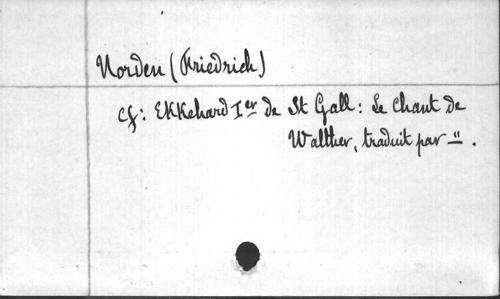 Norden (Friedrich)
cf: Ekkehard Ier de St Gall: Le Chant de
Walther, traduit par " .